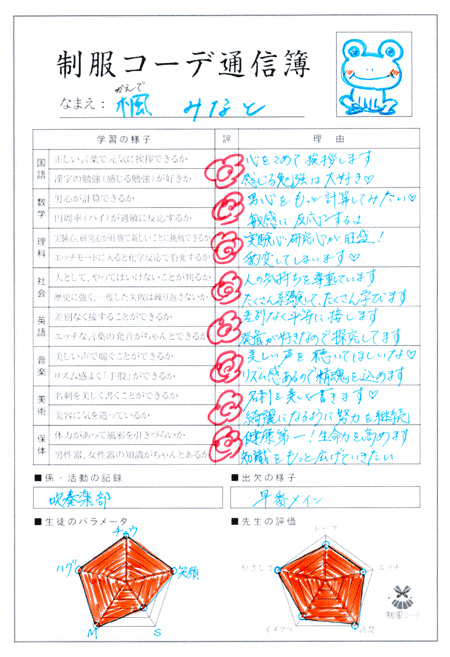 制服コーデ通信簿
かえで
なまえ: 楓 みなと
学習の様子 評 理由
国語 正しい言葉で元気に挨拶できるか 心をこめて挨拶します
漢字の勉強(感じる勉強)が好きか 感じる勉強は大好き♡
数学 男心が計算できるか 男心をもっと計算してみたい♡
円周率(パイ)が過敏に反応するか 敏感に反応するよ
理科 実験心、研究心が旺盛で新しいことに挑戦できるか 実験心・研究心が旺盛!
エッチモードに入ると化学反応で豹変するか 豹変してしまいます♡
社会 人として、やってはいけないことが判るか 人の気持ちを尊重ています
歴史に強く、一度した失敗は繰り返さないか たくさん経験して、たくさん学びます
英語 差別なく接することができるか 差別なく平等に接します
エッチな言葉の発音がちゃんとできるか 発音が好きなので探究してます
音楽 美しい声で囁くことができるか 美しい声を聴いてほしいな♡
リズム感よく「手股」ができるか リズム感あるので精魂を込めます
美術 名刺を美しく書くことができるか 名刺を美しく書きます♡
美容に気を遣っているか 綺麗になるように努力を継続
保体 体力があって風邪を引きづらいか 健康第一!生命力を高めます
男性器、女性器の知識がちゃんとあるか 知識をもっと広げていきたい
■係・活動の記録 ■出欠の様子
吹奏楽部 早番メイン
■生徒のパラメータ ■先生の評価
チュウ
ハグ 笑顔
M S
トーク
やさしさ エッチ
イメクラ 清楚
制服コーデ